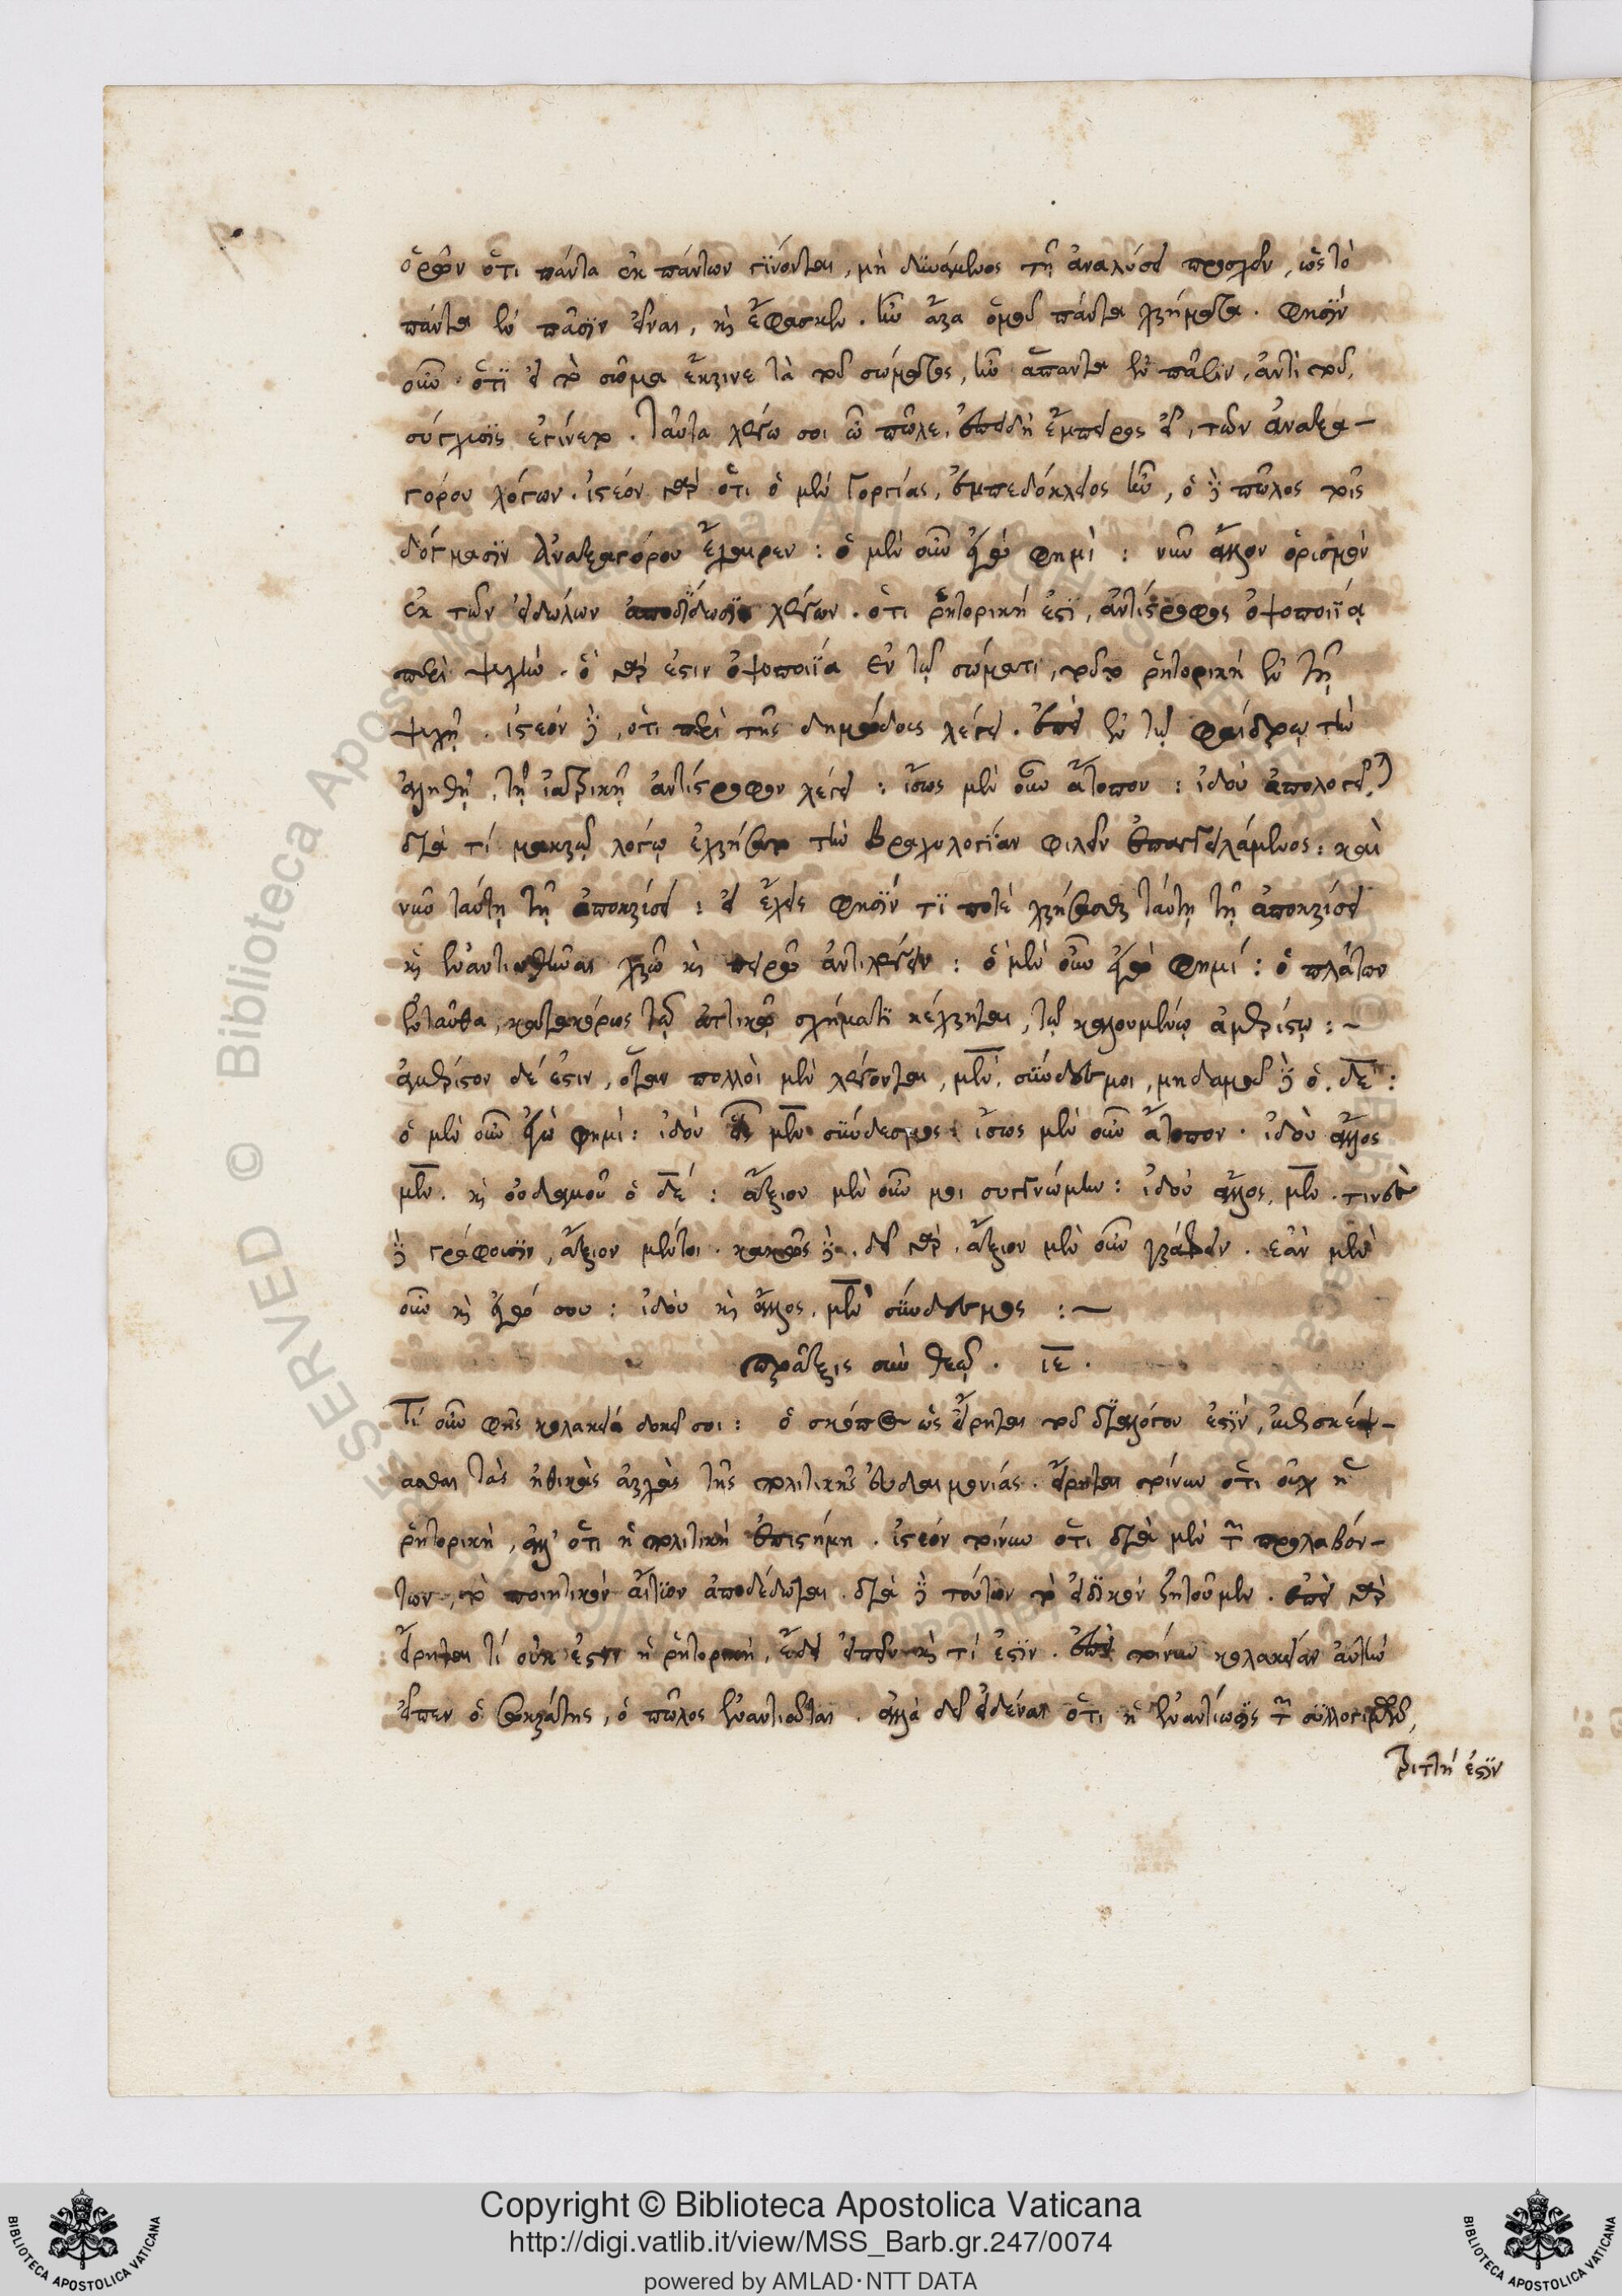 ὁρῶν ὅτι πάντα ἐκ πάντων γίνονται, μὴ δυνάμενος τῇ ἀναλύσει προσχεῖν, ὡς τὸ
πάντα ἐν πᾶσιν εἶναι, καὶ ἔφασκεν. ἦν ἄρα ὁμοῦ πάντα χρήματα. φησὶν
οὖν ὅτι εἰ τὸ σῶμα ἔκρινε τὰ τοῦ σώματος, ἦν ἅπαντα ἐν πᾶσιν, ἀντὶ τοῦ,
σύγχυσις ἐγίνετο. ταῦτα λέγω σοι ὦ πῶλε, ἐπειδὴ ἔμπειρος εἶ, τῶν ἀναξα-
γόρου λόγων. ἰστέον γὰρ ὅτι ὁ μὲν Γοργίας, ἐμπεδόκλειος ἦν, ὁ δὲ πῶλος τοῖς
δόγμασιν Ἀναξαγόρου ἔχαιρεν : ὃ μὲν οὖν ἐγώ φημι : νῦν ἄλλον ὁρισμὸν
ἐκ τῶν εἰδώλων ἀποδίδωσι λέγων. ὅτι ῥητορική ἐστι, ἀντίστροφος ὀψοποιΐα
περὶ ψυχήν. ὃ γάρ ἐστιν ὀψοποιΐα ἐν τῷ σώματι, τοῦτο ῥητορικὴ ἐν τῇ
ψυχῇ. ἰστέον δὲ, ὅτι περὶ τῆς δημώδους λέγει. ἐπεὶ ἐν τῷ φαίδρῳ τὴν
ἀληθῆ, τῇ ἰατρικῇ ἀντίστροφον λέγει : ἴσως μὲν οὖν ἄτοπον : ἰδοὺ ἀπολογεῖται
διὰ τί μακρῷ λόγῳ ἐχρήσατο τὴν βραχυλογίαν φιλεῖν ἐπαγγειλάμενος : καὶ
νῦν ταύτῃ τῇ ἀποκρίσει : εἰ ἔχεις φησὶν τί ποτε χρήσασθαι ταύτῃ τῇ ἀποκρίσει
καὶ ἐναντιωθῆναι χρῶ καὶ πειρῶ ἀντιλέγειν : ὃ μὲν οὖν ἐγὼ φημί : ὁ πλάτων
ἐνταῦθα, κατακόρως τῷ ἀττικῷ σχήματι κέχρηται, τῷ καλουμένῳ ἀμερίστῳ : ~
ἀμέριστον δέ ἐστιν, ὅταν πολλοὶ μὲν λέγονται, μέν, σύνδεσμοι, μηδαμοῦ δὲ ὁ, δέ :
ὃ μὲν οὖν ἐγὼ φημί : ἰδοὺ εἷς μὲν σύνδεσμος : ἴσως μὲν οὖν ἄτοπον. ἰδοὺ ἄλλος
μέν. καὶ οὐδαμοῦ ὁ δέ : ἄξιον μὲν οὖν μοι συγγνώμην : ἰδοὺ ἄλλος, μέν. τινὲς
δὲ γράφουσιν, ἄξιον μέντοι. κακῶς δὲ. δεῖ γὰρ, ἄξιον μὲν οὖν γράφειν. ἐὰν μὲν
οὖν καὶ ἐγώ σου : ἰδοὺ καὶ ἄλλος, μὲν σύνδεσμος : ~
πρᾶξις σὺν θεῷ. ιε.
Τί οὖν φῂς κολακεία δοκεῖ σοι : ὁ σκοπὸς ὡς εἴρηται τοῦ διαλόγου ἐστὶν, ἐπισκέψ-
ασθαι τὰς ἠθικὰς ἀρχὰς τῆς πολιτικῆς εὐδαιμονίας. εἴρηται τοίνυν ὅτι οὐχ ἡ
ῥητορικὴ, ἀλλ' ὅτι ἡ πολιτικὴ ἐπιστήμη. ἰστέον τοίνυν ὅτι διὰ μὲν τῶν προλαβόν-
των, τὸ ποιητικὸν αἴτιον ἀποδέδωται. διὰ δὲ τούτων τὸ εἰδικὸν ζητοῦμεν. ἐπεὶ γὰρ
εἴρηται τί οὐκ ἔστιν ἡ ῥητορικὴ, ἔδει εἰπεῖν καὶ τί ἐστιν. ἐπεὶ τοίνυν κολακείαν αὐτὴν
εἶπεν ὁ σωκράτης, ὁ πῶλος ἐναντιοῦται. ἀλλὰ δεῖ εἰδέναι ὅτι ἡ ἐναντίωσις τοῦ συλλογισμοῦ,
τριττή ἐστιν
Copyright © Biblioteca Apostolica Vaticana
http://digi.vatlib.it/view/MSS_Barb.gr.247/0074
powered by AMLAD·NTT DATA